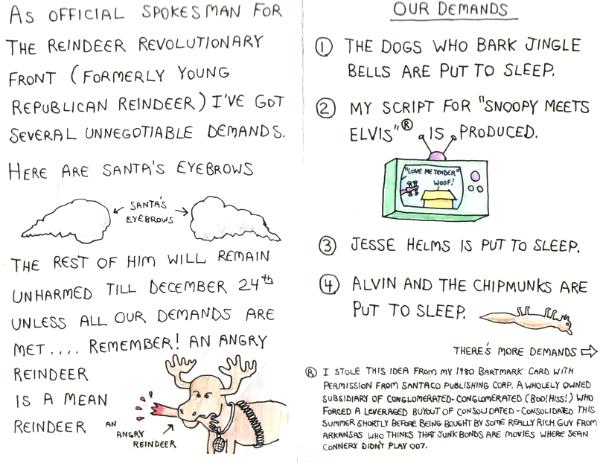 AS OFFICIAL SPOKESMAN FOR
THE REINDEER REVOLUTIONARY
FRONT (FORMERLY YOUNG
REPUBLICAN REINDEER) I'VE GOT
SEVERAL UNNEGOTIABLE DEMANDS.
HERE ARE SANTA'S EYEBROWS
SANTA'S
EYEBROWS
THE REST OF HIM WILL REMAIN
UNHARMED TILL DECEMBER 24th
UNLESS ALL OUR DEMANDS ARE
MET.... REMEMBER! AN ANGRY
REINDEER
IS A MEAN
REINDEER
AN
ANGRY
REINDEER
OUR DEMANDS
1 THE DOGS WHO BARK JINGLE
BELLS ARE PUT TO SLEEP.
2 MY SCRIPT FOR "SNOOPY MEETS
ELVIS"® IS PRODUCED.
"LOVE ME TENDER"
WOOF!
3 JESSE HELMS IS PUT TO SLEEP.
4 ALVIN AND THE CHIPMUNKS ARE
PUT TO SLEEP.
THERE'S MORE DEMANDS ⇨
® I STOLE THIS IDEA FROM MY 1980 BARTMARK CARD WITH
PERMISSION FROM SANTACO PUBLISHING CORP. A WHOLELY OWNED
SUBSIDIARY OF CONGLOMERATED-CONGLOMERATED (BOO! HISS!) WHO
FORCED A LEVERAGED BUYOUT OF CONSOLIDATED-CONSOLIDATED THIS
SUMMER SHORTLY BEFORE BEING BOUGHT BY SOME REALLY RICH GUY FROM
ARKANSAS WHO THINKS THAT JUNK BONDS ARE MOVIES WHERE SEAN
CONNERY DIDN'T PLAY 007.